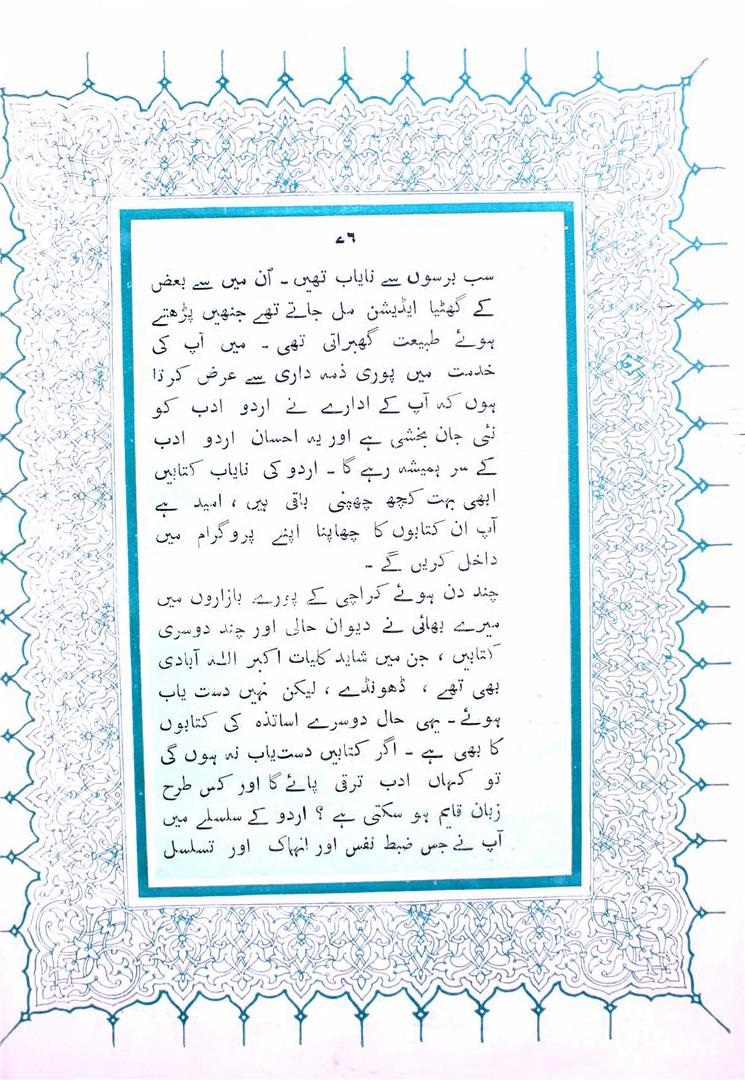 ۷٦
سب برسوں سے نایاب تھیں ۔ اُن میں سے بعض
کے گھٹیا ایڈیشن مل جاتے تھے جنھیں پڑھتے
ہوئے طبیعت گھبراتی تھی ۔ میں آپ کی
خدمت میں پوری ذمہ داری سے عرض کرتا
ہوں کہ آپ کے ادارے نے اردو ادب کو
نئی جان بخشی ہے اور یہ احسان اردو ادب
کے سر ہمیشہ رہے گا ۔ اردو کی نایاب کتابیں
ابھی بہت کچھ چھپنی باقی ہیں ، امید ہے
آپ ان کتابوں کا چھاپنا اپنے پروگرام میں
داخل کریں گے ۔
چند دن ہوئے کراچی کے پورے بازاروں میں
میرے بھائی نے دیوان حالی اور چند دوسری
کتابیں ، جن میں شاید کلیات اکبر اللہ آبادی
بھی تھے ، ڈھونڈے ، لیکن نہیں دست یاب
ہوئے ۔ یہی حال دوسرے اساتذہ کی کتابوں
کا بھی ہے ۔ اگر کتابیں دست یاب نہ ہوں گی
تو کہاں ادب ترقی پائے گا اور کس طرح
زبان قایم ہو سکتی ہے ؟ اردو کے سلسلے میں
آپ نے جس ضبط نفس اور انہماک اور تسلسل